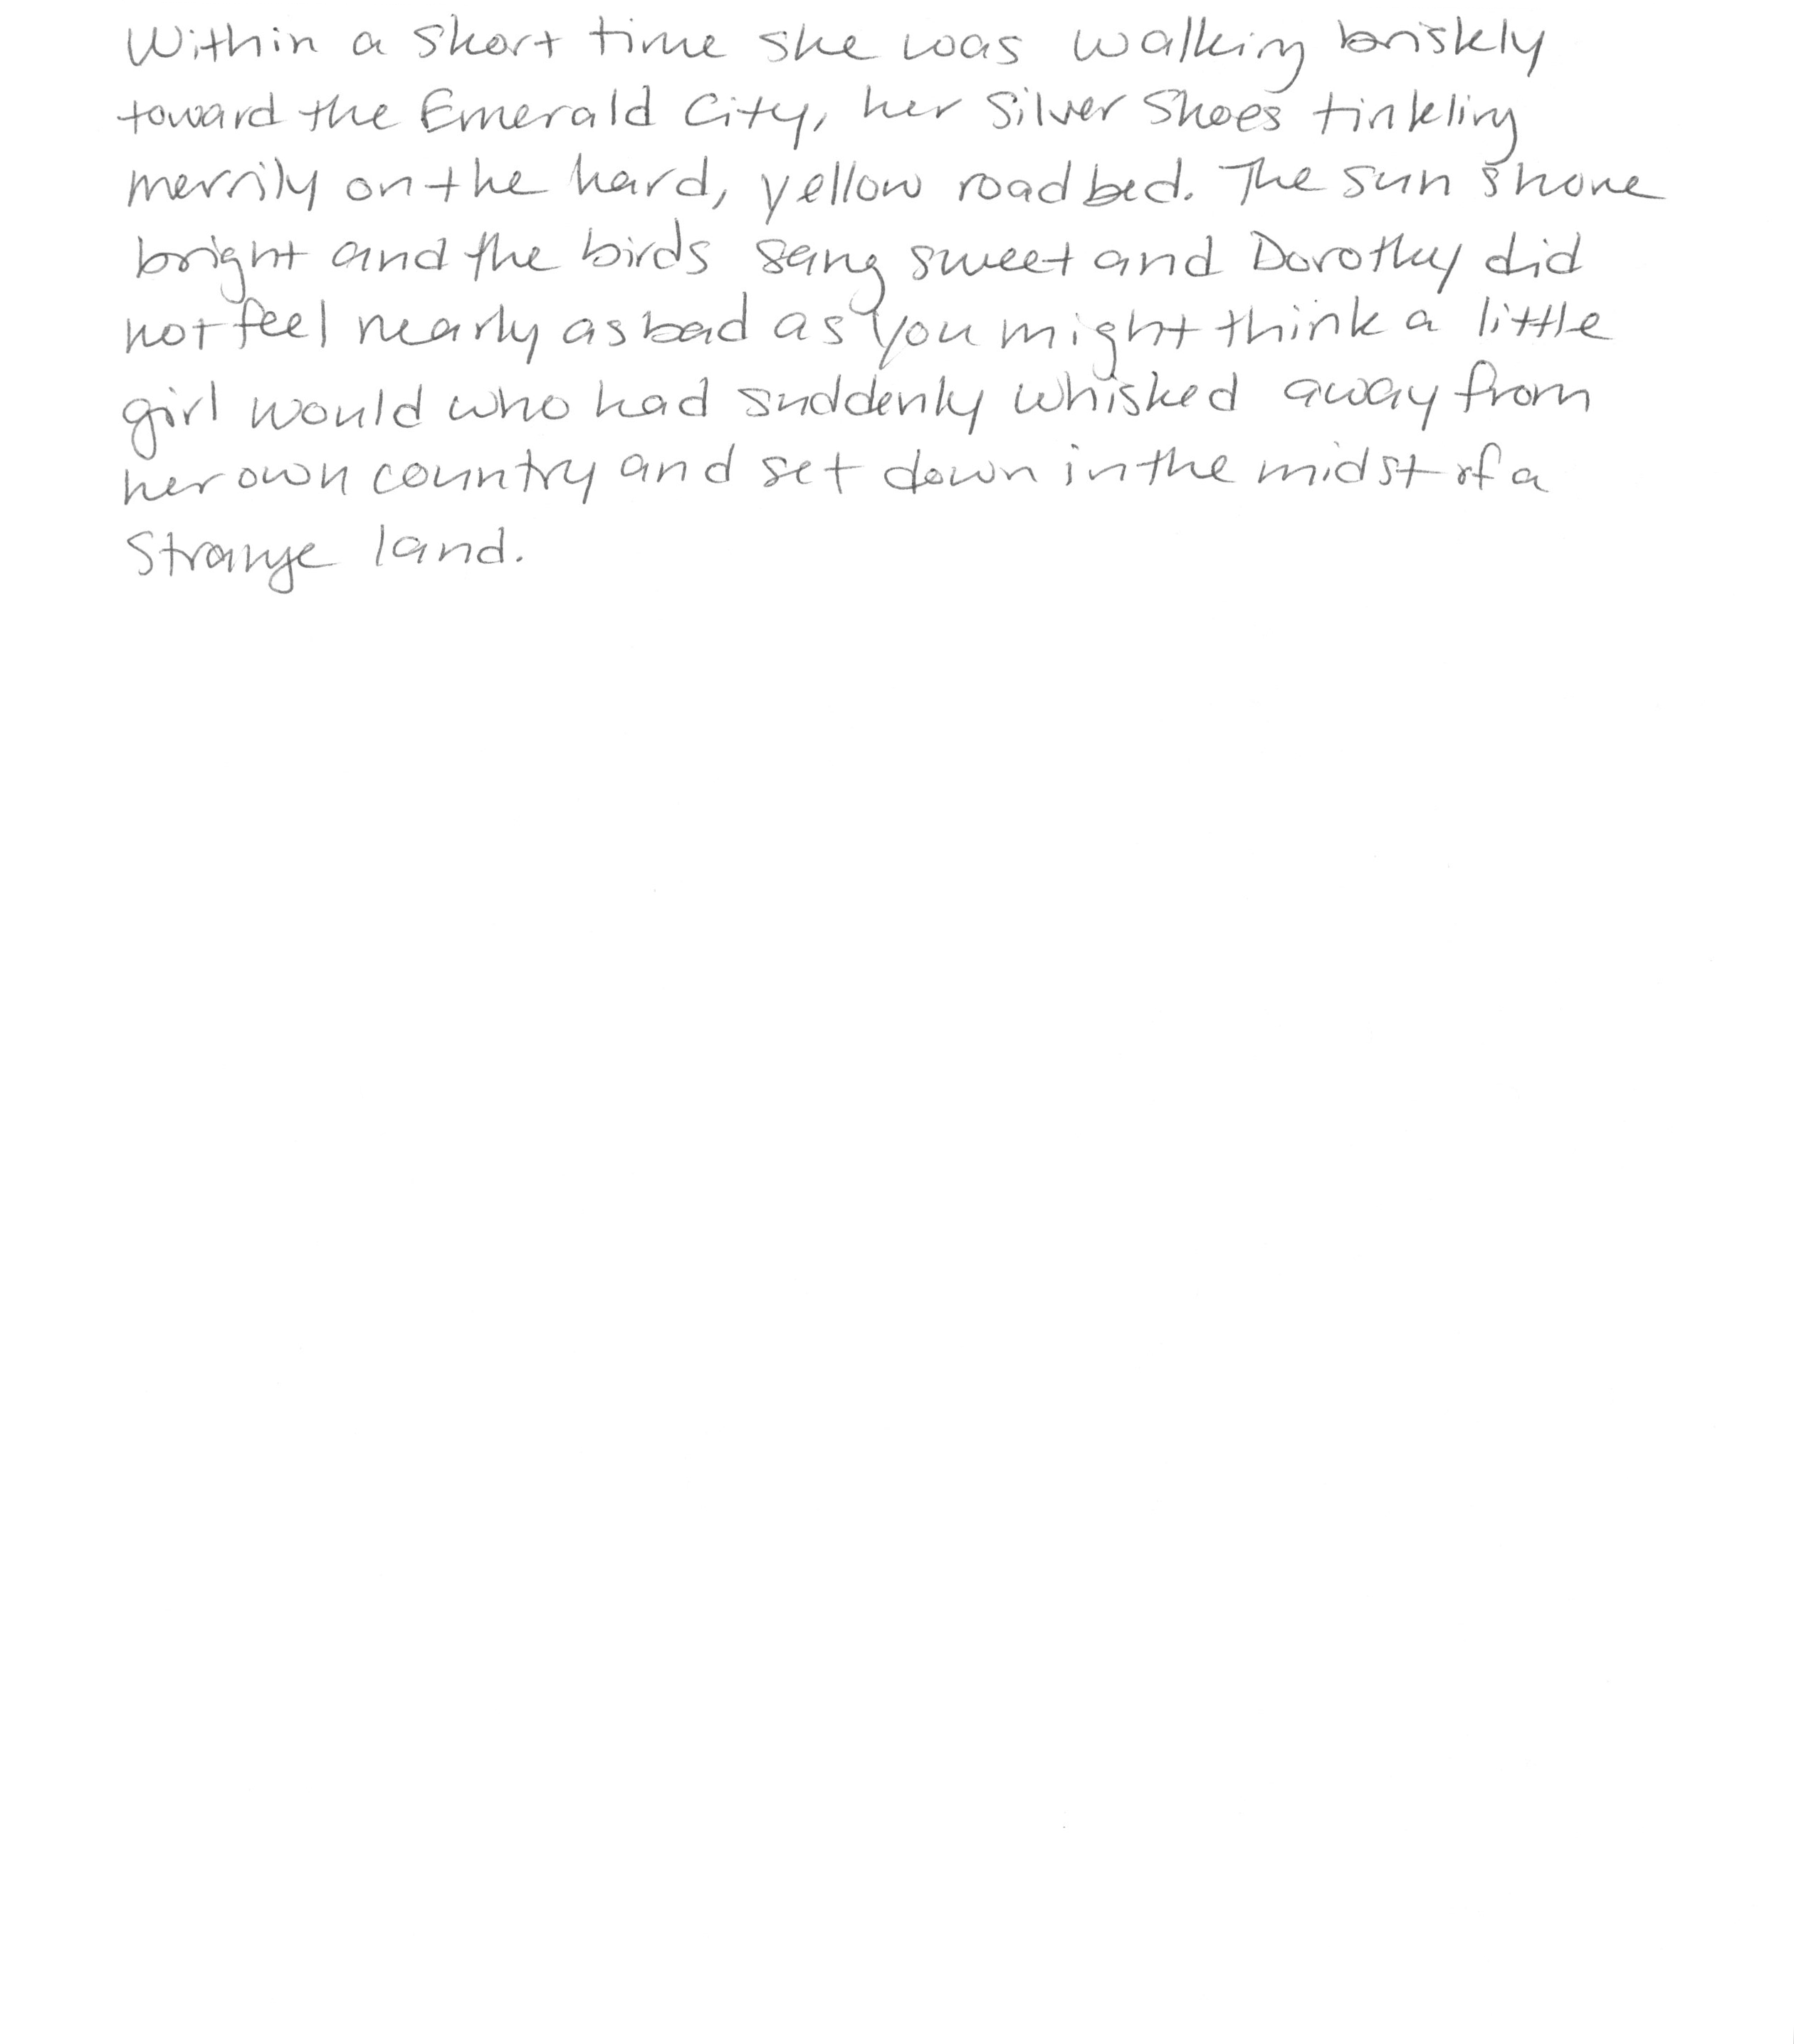 Within a short time she was walking briskly
toward the Emerald City, her Silver Shoes tinkling
merrily on the hard, yellow roadbed. The sun shone
bright and the birds sang sweet and Dorothy did
not feel nearly as bad as you might think a little
girl would who had suddenly whisked away from
her own country and set down in the midst of a
strange land.